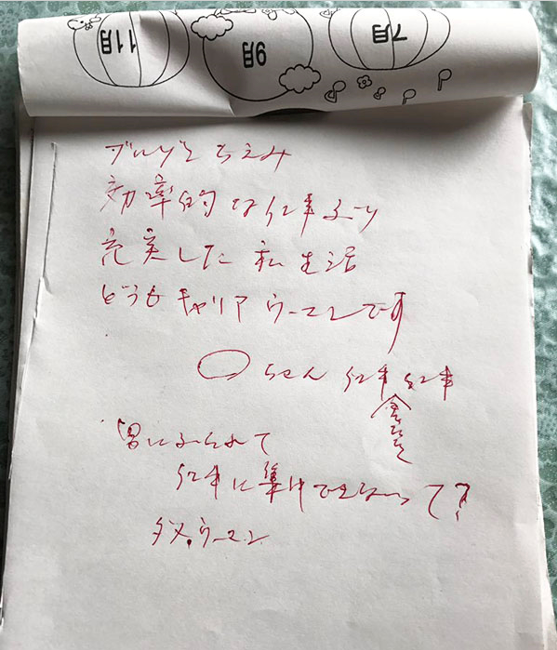 11月 9月 7月
ブルゾンちえみ
効率的な仕事ぶり
充実した私生活
どうもキャリアウーマンです
○ちゃん 仕事 仕事
男にふられて
仕事に集中できないって?
ダメウーマン